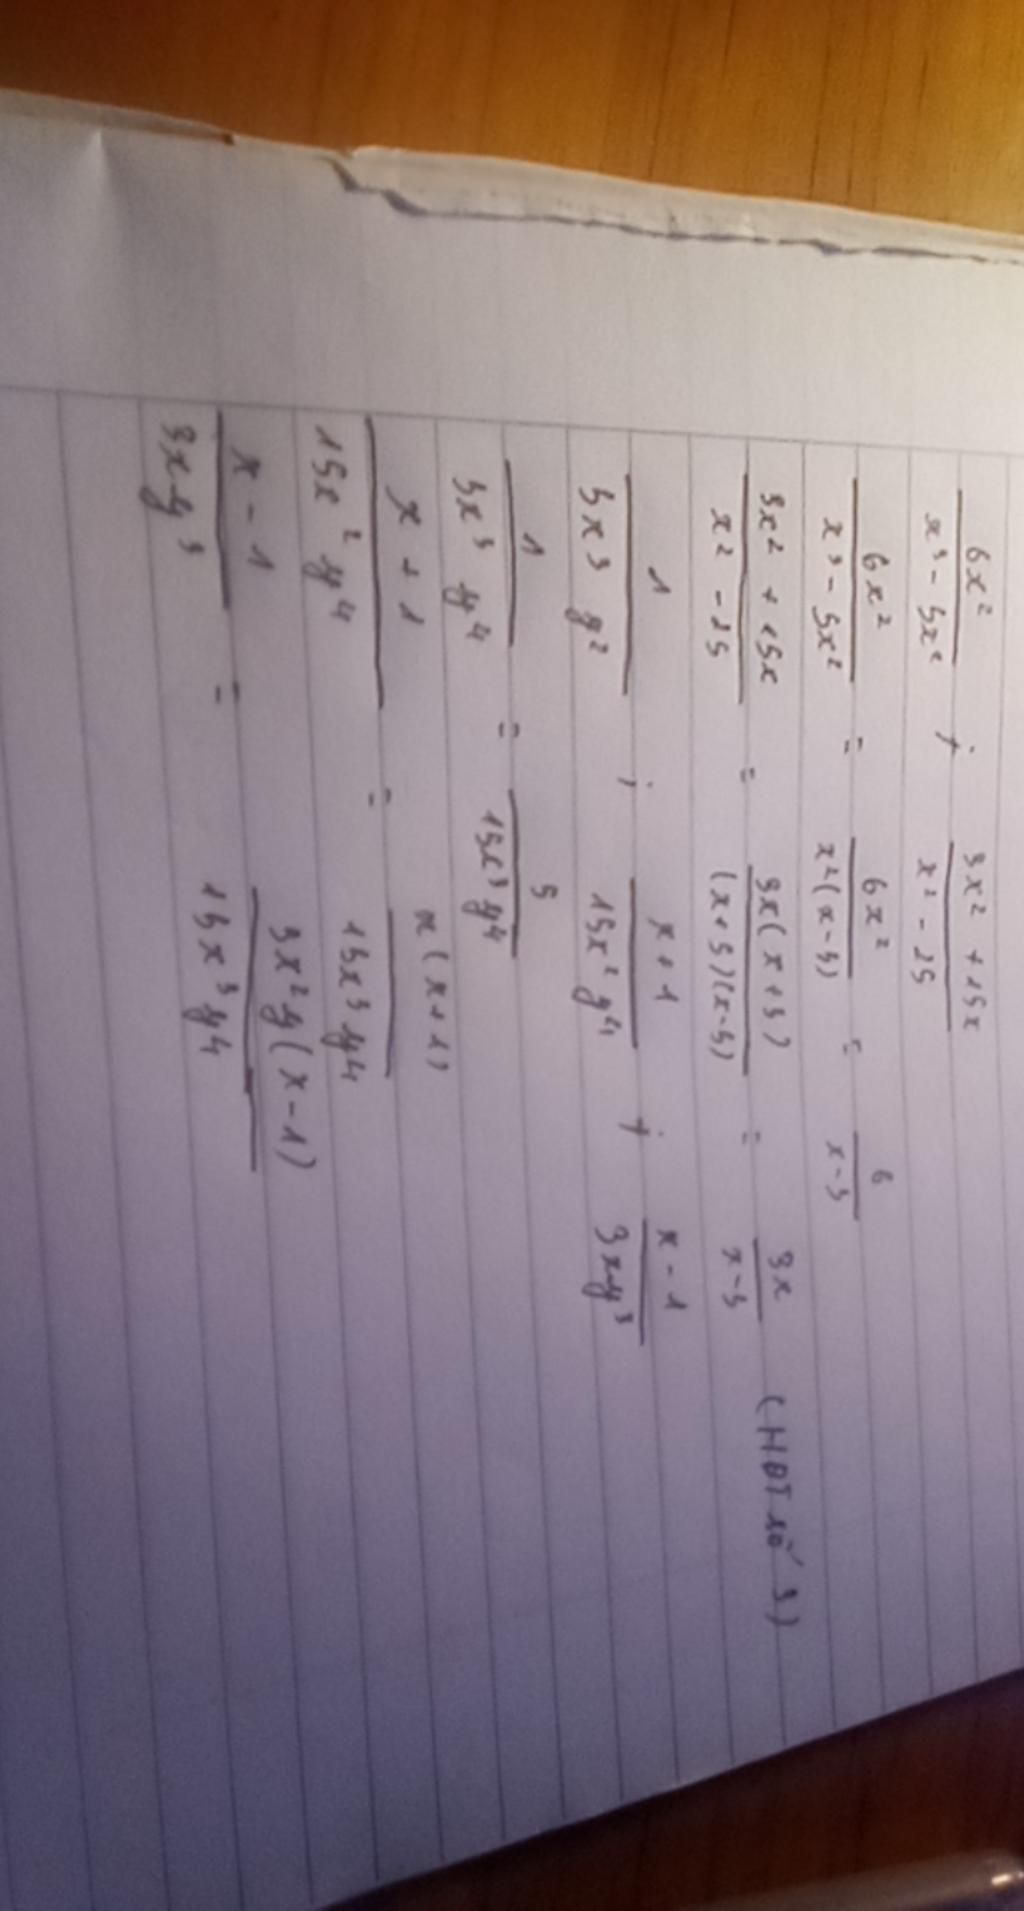 6x² / (x³ - 5x²) ; (3x² + 15x) / (x² - 25)
6x² / (x³ - 5x²) = 6x² / (x²(x-5)) = 6 / (x-5)
(3x² + 15x) / (x² - 25) = 3x(x+5) / ((x+5)(x-5)) = 3x / (x-5) (HĐT số 3)
1 / (5x³y²) ; (x+1) / (15x²y⁴) ; (x-1) / (3xy³)
1 / (5x³y⁴) = 5 / (15x³y⁴)
(x+1) / (15x²y⁴) = x(x+1) / (15x³y⁴)
(x-1) / (3xy³) = 5x²y(x-1) / (15x³y⁴)